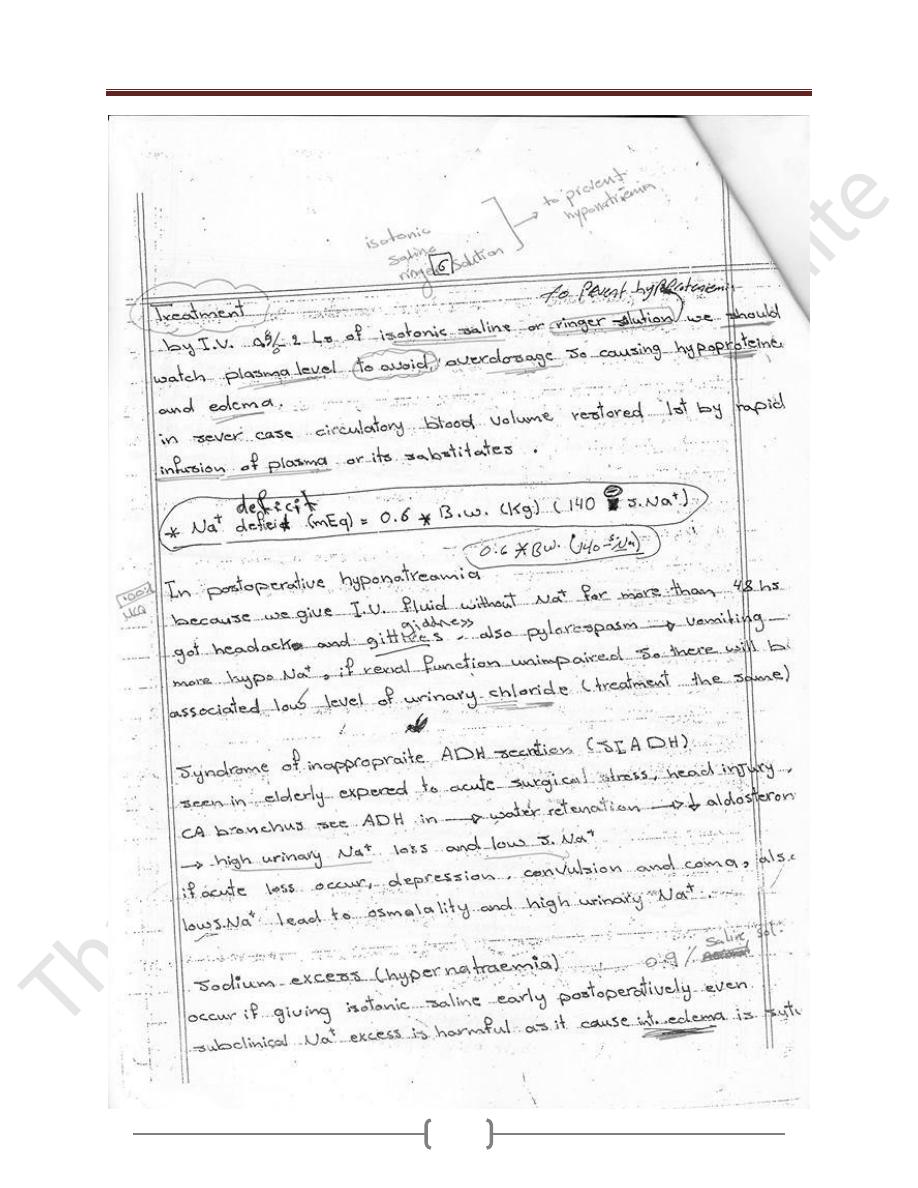 isotonic
saline
ringer solution
to prevent
hyponatraemia
6
Treatment
by I.V. 2 Ls of isotonic saline or ringer slution we should
watch plasma level to avoid overdosage so causing hypoproteine
and edema.
in sever case circulatory blood volume restored 1st by rapid
infusion of plasma or its sabstitates.
deficit
* Na+ deficit (mEq) = 0.6 * B.w. (Kg) (140 - s.Na+)
0.6 * Bw. (140 - s.Na)
100%
MCQ
In postoperative hyponatreamia
because we give I.V. fluid without Na+ for more than 48 hs
giddness
got headack and gittnes, also pylorospasm → vomiting
more hypo Na+, if renal function unimpaired so there will b
associated low level of urinary chloride (treatment the same)
Syndrome of inappropraite ADH secretion (SIADH)
seen in elderly expered to acute surgical stress, head injury,
CA branchus see ADH in → water retenation → ↓ aldosteron
→ high urinary Na+ loss and low s.Na+
if acute loss occur, depression, convulsion and coma, als
low s.Na+ lead to osmalality and high urinary Na+.
Sodium excess (hypernatraemia)
0.9% saline sol.
occur if giving isotonic saline early postoperatively even
subclinical Na+ excess is harmful as it cause int. edema is sutu